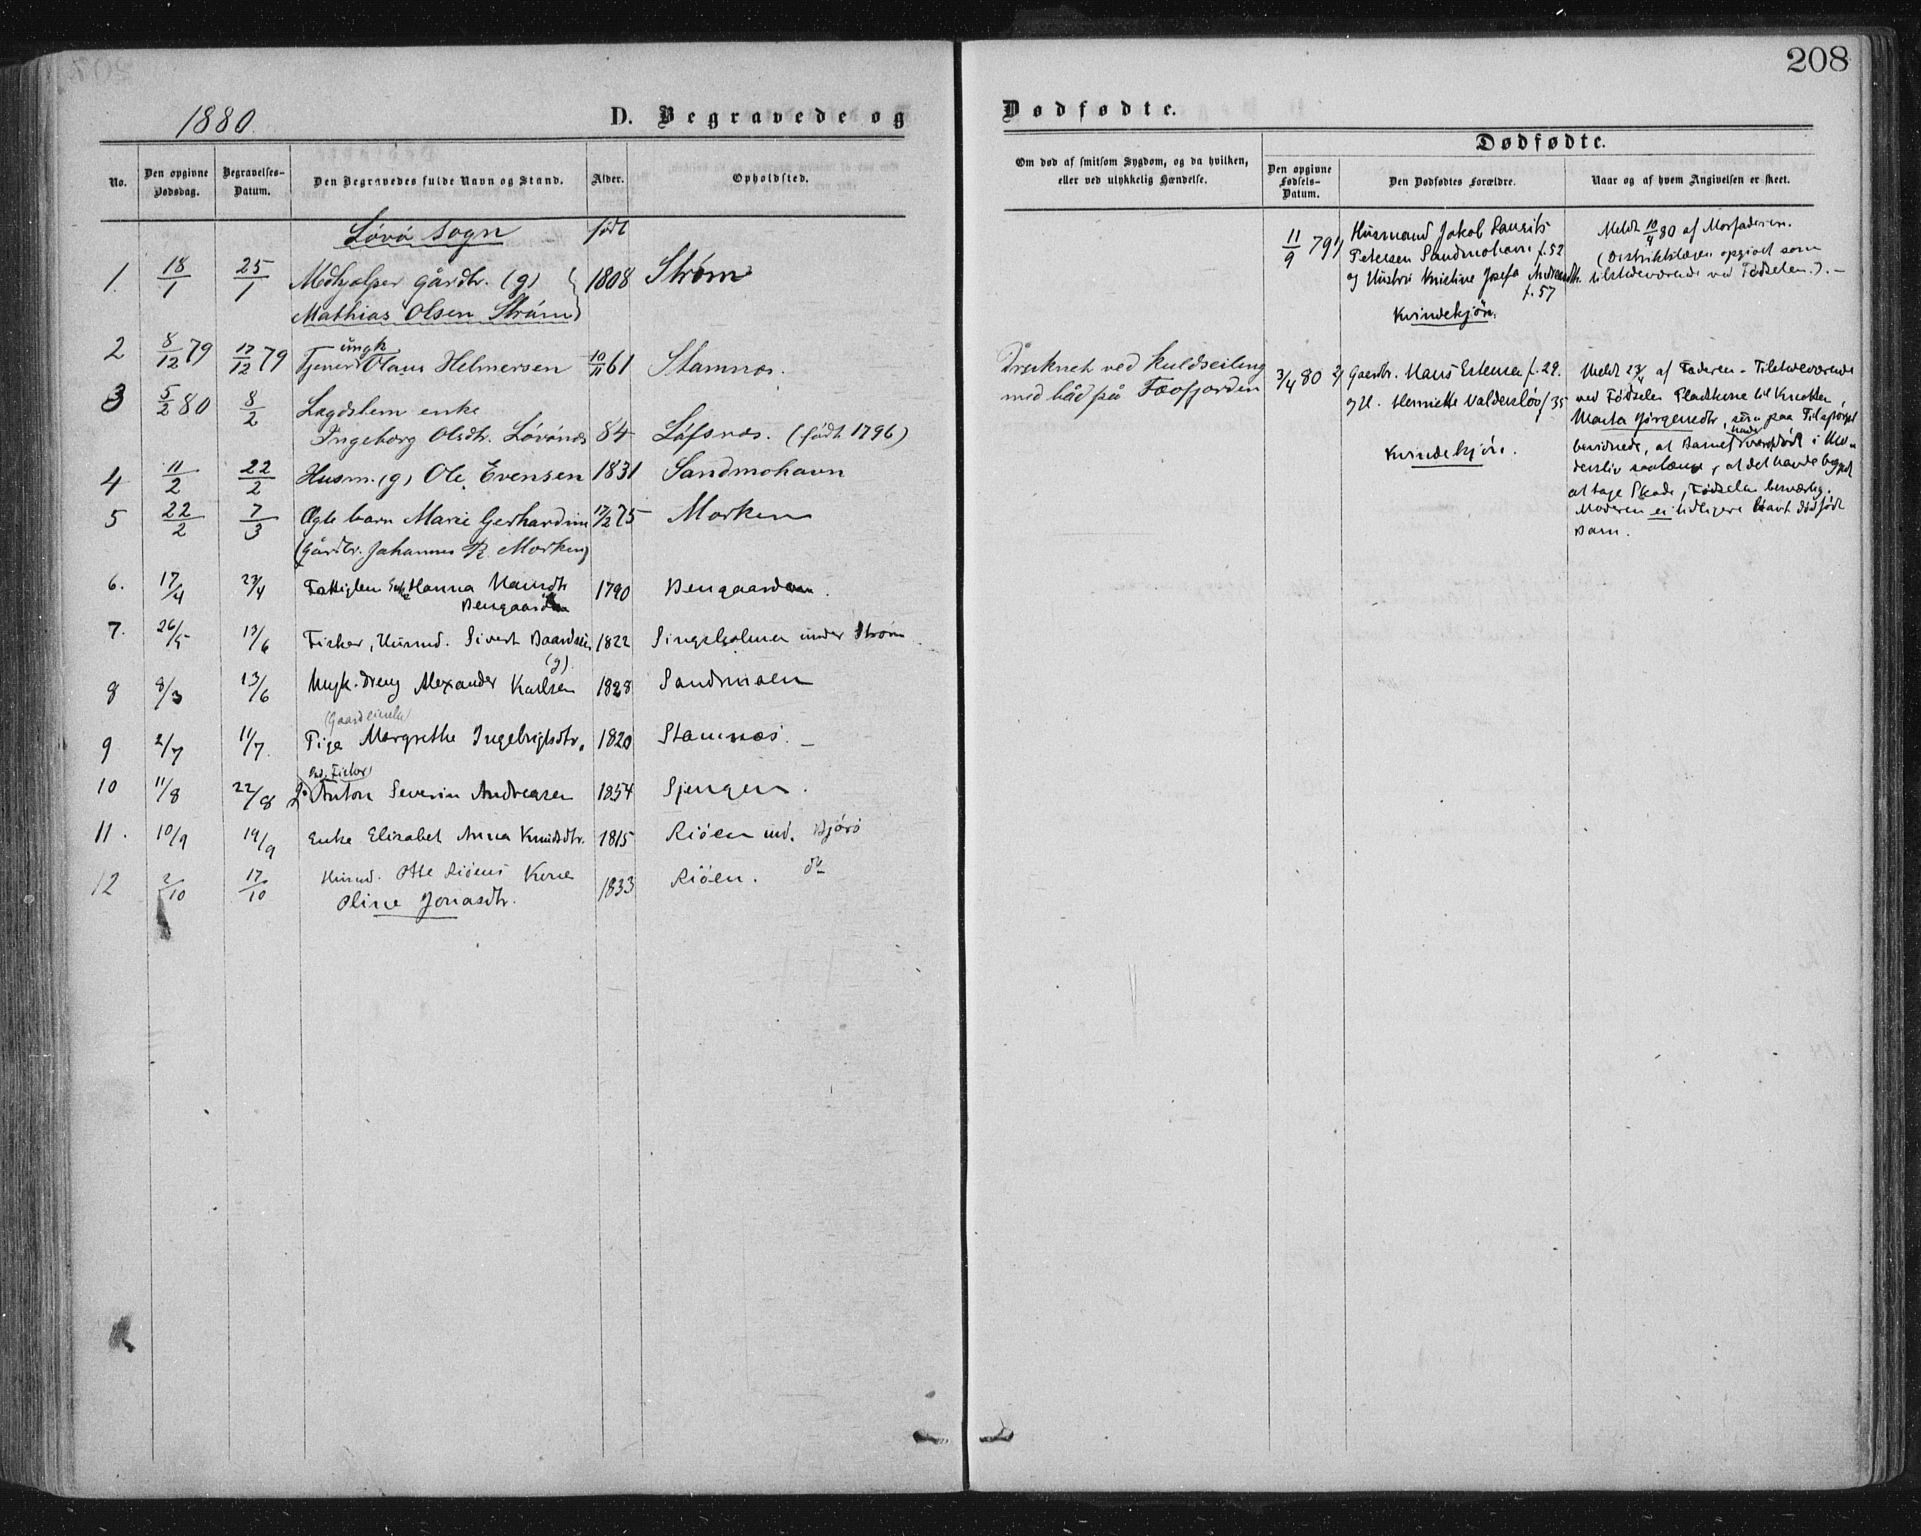 208
1880.
D. Begravede og
Dødfødte.
No.
Den opgivne Dødsdag.
Begravelses-Datum.
Den Begravedes fulde Navn og Stand.
Alder.
Opholdsted.
Om død af smitsom Sygdom, og da hvilken, eller ved ulykkelig Hændelse.
Dødfødte.
Den opgivne Fødsels-Datum.
Den Dødfødtes Forældre.
Naar og af hvem Angivelsen er skeet.
Løvø Sogn
født
1. 18/1 25/1 Medhjelper gårdbr. (g) 1808 Strøm
Mathias Olsen Strøm
2 8/12 79 17/12 79 Tjener ungk Olaus Helmersen 10/11 61 Stamnæs.
Druknet ved kuldseiling
med båd på
3 5/2 80 8/2 Lægdslem enke
Ingeborg Olsdtr. Løvønæs 84 Låfsnæs. (født 1796)
4 11/2 22/2 Husm. (g) Ole Evensen 1831 Sandmohavn
5 22/2 7/3 Ægte barn Marie Gerhardine 17/2 75 Morken
(gårdbr. Johannes R. Morken)
6. 17/4 23/4 Fattiglem Enke Hanna Hansdtr 1790 Bengaarden.
Bengaarden
7. 26/5 13/6 Fisker, Husmd. Sivert Baardsen 1822 under Strøm
(g).
8 8/3 13/6 Ungk. Dreng Alexander Karlsen 1828 Sandmoen
9 2/7 11/7. Pige Margrethe Ingebrigtsdtr. 1820 Stamnæs.
10 11/8 22/8 Anton Severin Andreasen 1854 Sjengen.
11. 10/9 19/9 Enke Elisabet Anna Knudsdtr. 1815 Riøen und. Bjørø
12 2/10 17/10 Husmd. Otte Riøens Kone 1833 Riøen. do
Oline Jonasdtr.
11/9 79 1) Husmand Jakob Laurits
Petersen Sandmohavn f. 52
og Hustru Kristine Josefa Andreasdtr.
f. 57
Kvindekjøn.
Meldt 10/4 80 af Morfaderen.
(Distriktslægen opgivet som
tilstedeværende ved Fødselen.). —
3/4 80 2) Gaardbr. Hans Estensen f. 29.
og H. Henriette Valdersløv f 35
Kvindekjøn.
Meldt af Faderen. Tilstedeværende
ved Fødselen
Marta Jørgensdtr, som paa Tilspørgsel
at Barnet havde været dødt i Mo-
dersliv saalænge, at det havde begyndt
at tage Skade, Fødselen besværlig.
Moderen ei tidligere havt dødfødt
Barn.